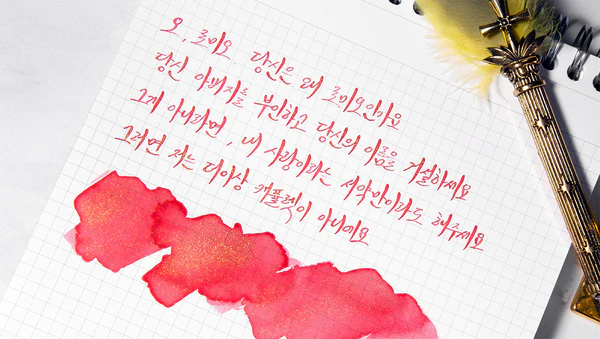 오, 로미오 당신은 왜 로미오인가요
당신 아버지를 부인하고 당신의 이름을 거절하세요
그게 아니라면, 내 사랑이라는 서약만이라도 해주세요
그러면 저는 더이상 캐플렛이 아니에요